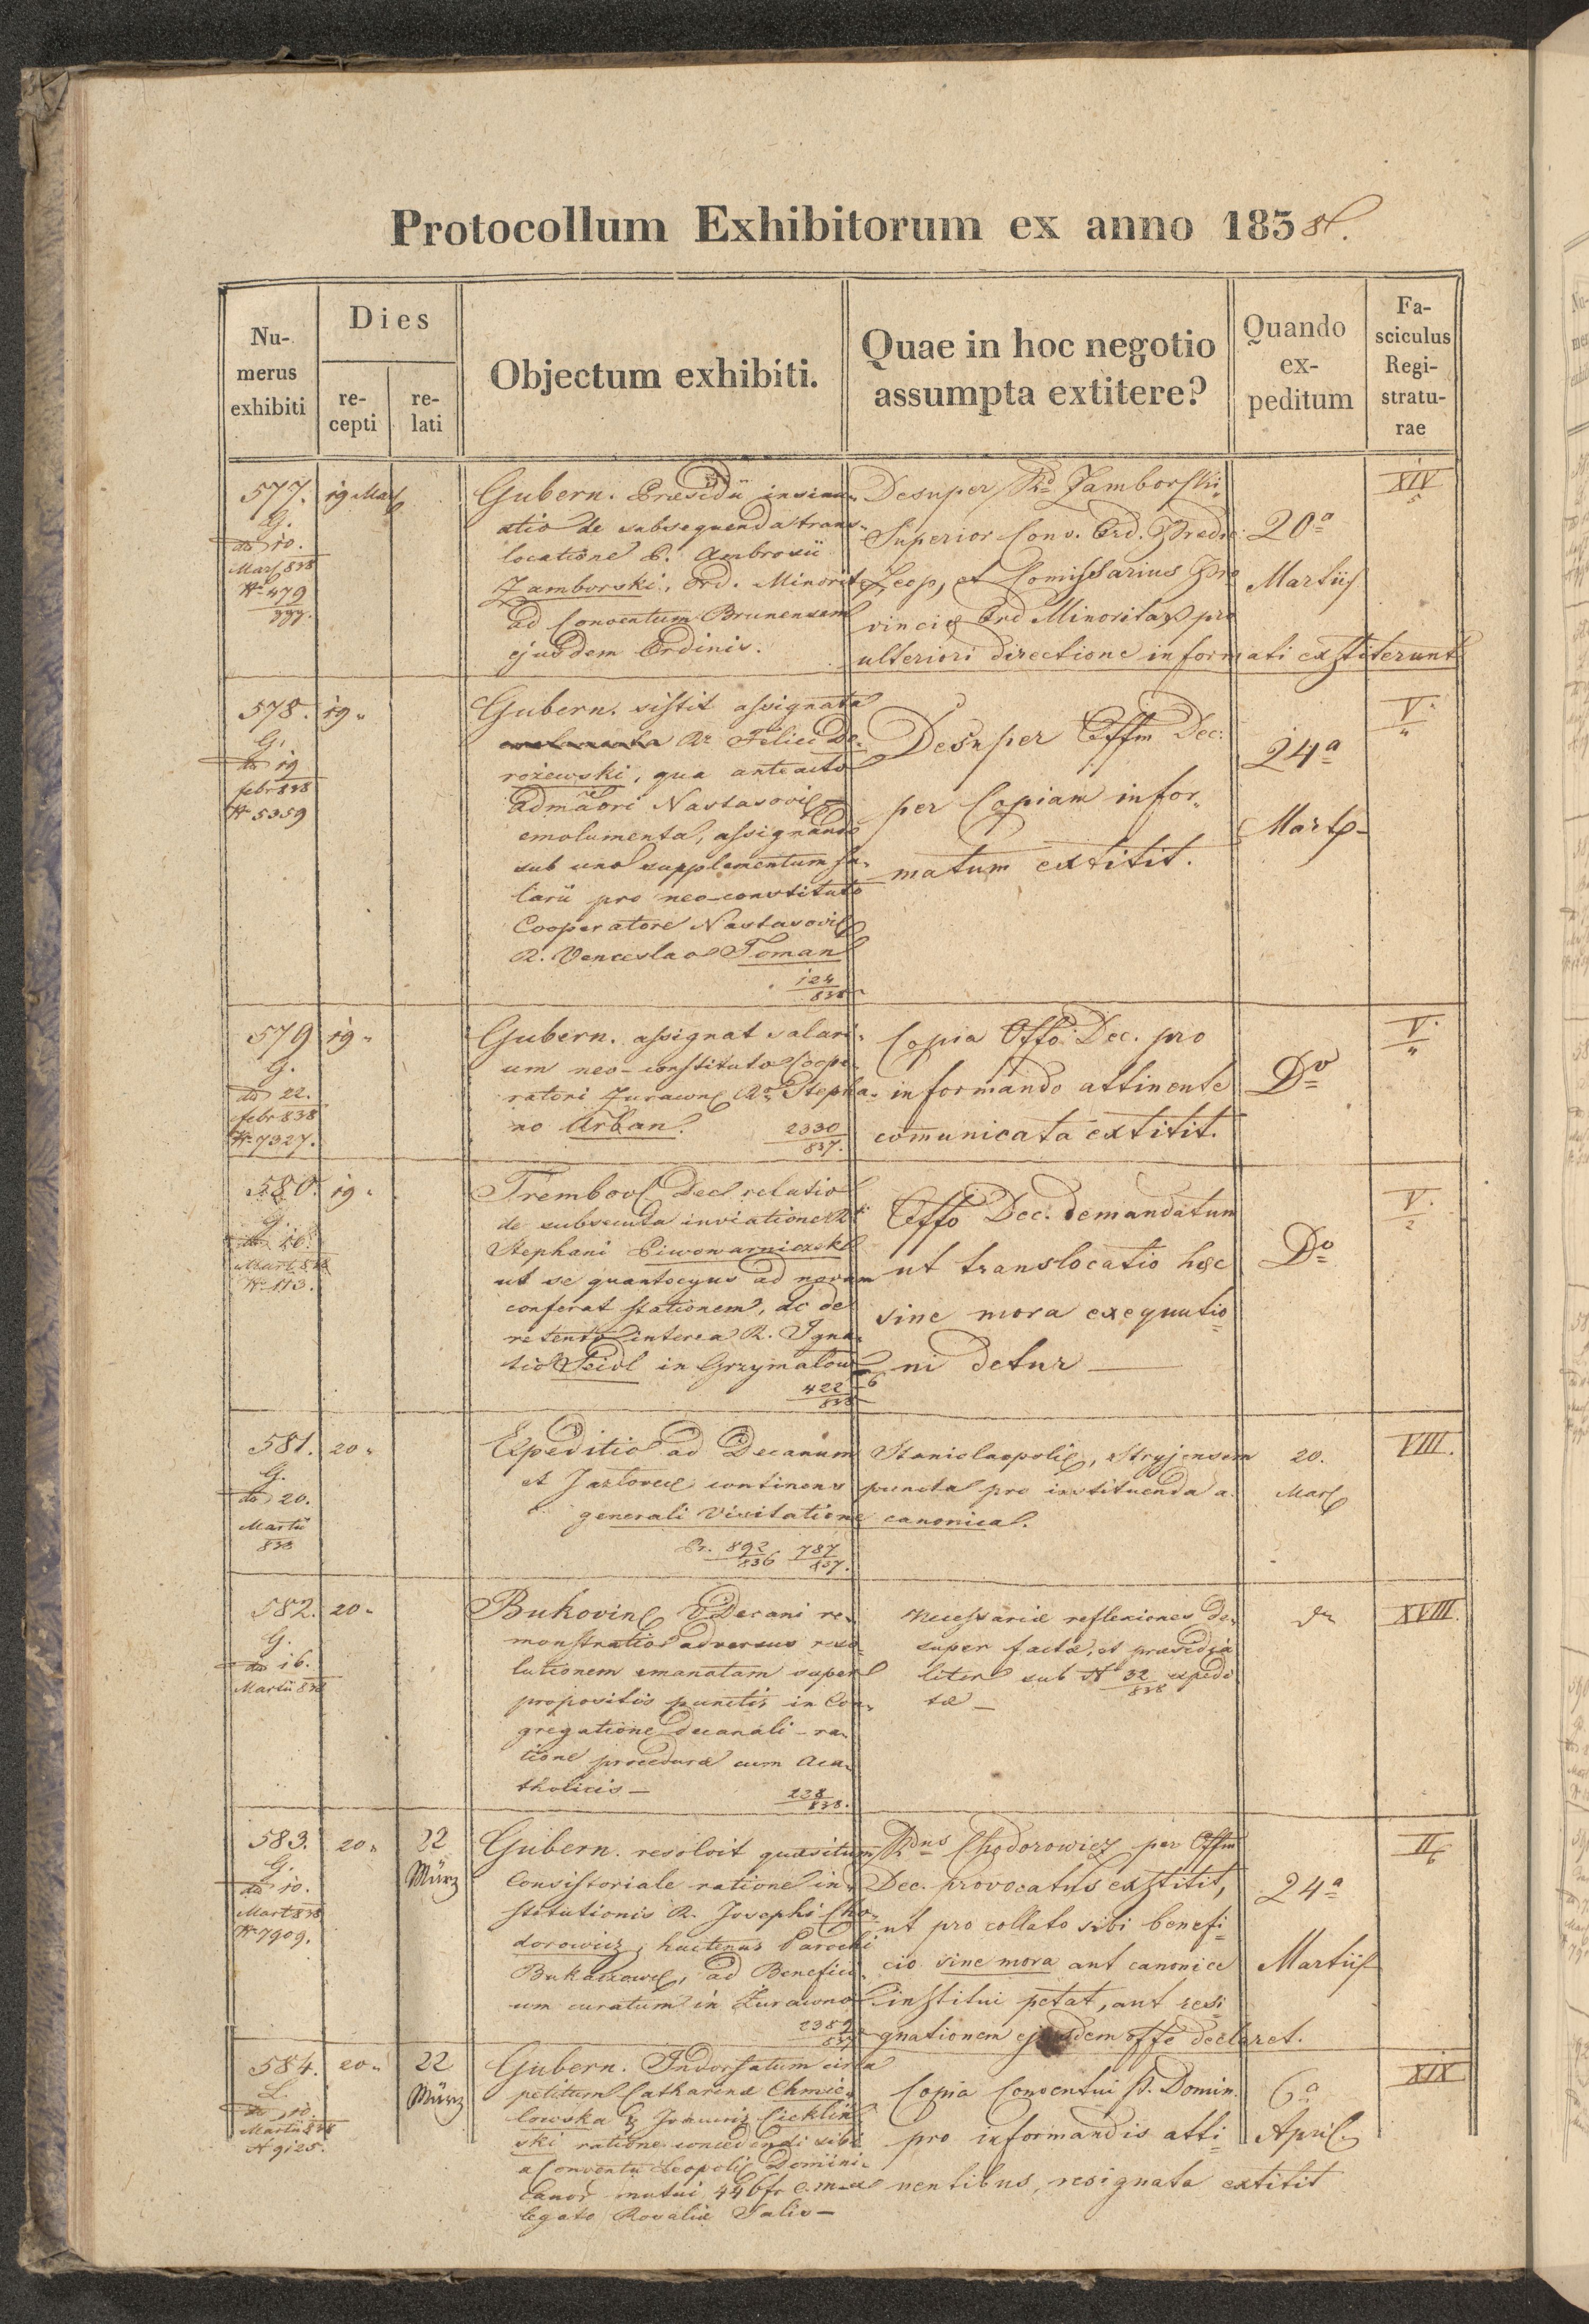 Protocollum Exhibitorum ex anno 1838.
Nu-
merus
exhibiti
Dies
re-
cepti
re-
lati
Objectum exhibiti.
Quae in hoc negotio
assumpta extitere?
Quando
ex-
peditum
Fa-
sciculus
Regi-
stratu-
rae
577.
G.
dd 10.
Mart 838
N 479
19 Mart
Gubern. Præsidii insinu-
atio de subsequenda trans-
locatione P. Ambrosii
Zamborski, Ord. Minorit
ad Conventum Brunensem
ejusdem Ordinis.
Desuper Rd Zamborski
Superior Conv. Ord. Prædic
Leop, et Comissarius Pro
vinciæ Ord Minoritar pro
ulteriori directione informati exstiterunt
20a
Martii
XIV
5
578.
G.
dd 19
febr 838
N 5359
19 "
Gubern. sistit assignata
Ro Felici De-
rożewski, qua anteacto
admãori Nastasoviæ
emolumenta, assignando
sub uno supplementum sa-
larii pro neo-constituto
Cooperatore Nastasoviæ
R. Venceslao Toman
124
838
Desuper Offm Dec.
per Copiam infor-
matum extitit.
24a
Mart
V.
"
579
G.
dd 22.
febr 838
N 7327.
19 "
Gubern. assignat salari-
um neo-constituto Coope-
ratori Zurawnæ Ro Stepha-
no Urban.
2330
837.
Copia Offo Dec. pro
informando attinente
comunicata extitit.
Do
V.
"
580.
G.
dd 16.
Mart 838
N 113.
19 "
Trembovl Dec relatio
de subsecuta inviatione Rdi
Stephani Piwowarniczek
ut se quantocyus ad novam
conferat stationem, ac de
retento interea R. Igna-
tio Seidl in Grzymałow
422
838
Offo Dec. demandatum
ut translocatio hæc
sine mora exequutio
ni detur —
Do
V.
2
581.
G.
dd 20.
Martii
838
20 "
Expeditio ad Decanum Stanislaopoliæ, Stryjensem
et Jazlovec continens puncta pro instituenda a.
generali Visitatione canonica.
Pr. 892 787
836 837.
20.
Mart
VIII.
582.
G.
dd 16.
Martii 838
20 "
Bukovinæ VDecani re-
monstratio adversus reso-
lutionem emanatam super
propositis punctis in Con-
gregatione decanali - ra-
tione procedura cum Aca-
tholicis —
238
838.
Necessariæ reflexiones de-
super factæ, et præsidia
liter sub N 32 expedi
838
tæ —
do
XVIII.
583.
G.
dd 10.
Mart 838
N 7909.
20 "
22
März
Gubern. resolvit quæsitum
Consistoriale ratione in-
stitutionis R. Josephi Cho-
dorowicz, hactenus Parochi
Bukaczowc, ad Benefici-
um curatum in Zurawno
2389
837
Rdus Chodorowicz per Offm
Dec. provocatus exstitit,
ut pro collato sibi benefi-
cio sine mora aut canonice
institui petat, aut resi-
gnationem ejusdem offo declaret.
24a
Martii
II
6
584.
L.
dd 10.
Martii 838
N 9125.
20 "
22
März
Gubern. Indorsatum circa
petitum Catharinæ Chmie-
lowska & Joannis Cieklin-
ski ratione concedendi sibi
a Conventu Leopoliæ Domini-
canor mutui 446 fr C.M. ex
legato Rosaliæ Salis —
Copia Conventui P. Domin.
pro informandis atti-
nentibus, resignata extitit
6a
April
XIX